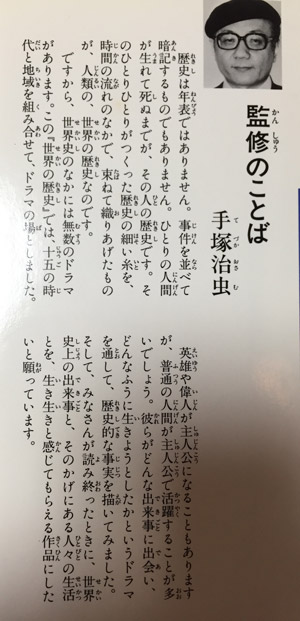 監修のことば
手塚治虫
歴史は年表ではありません。事件を並べて
暗記するものでもありません。ひとりの人間
が生れて死ぬまでが、その人の歴史です。そ
のひとりひとりがつくった歴史の細い糸を、
時間の流れのなかで、束ねて織りあげたもの
が、人類の、世界の歴史なのです。
ですから、世界史のなかには無数のドラマ
があります。この『世界の歴史』では、十五の時
代と地域を組み合せて、ドラマの場としました。
英雄や偉人が主人公になることもあります
が、普通の人間が主人公で活躍することが多
いでしょう。彼らがどんな出来事に出会い、
どんなふうに生きようとしたかというドラマ
を通して、歴史的な事実を描いてみました。
そして、みなさんが読み終ったときに、世界
史上の出来事と、そのかげにある人々の生活
とを、生き生きと感じてもらえる作品にした
いと願っています。